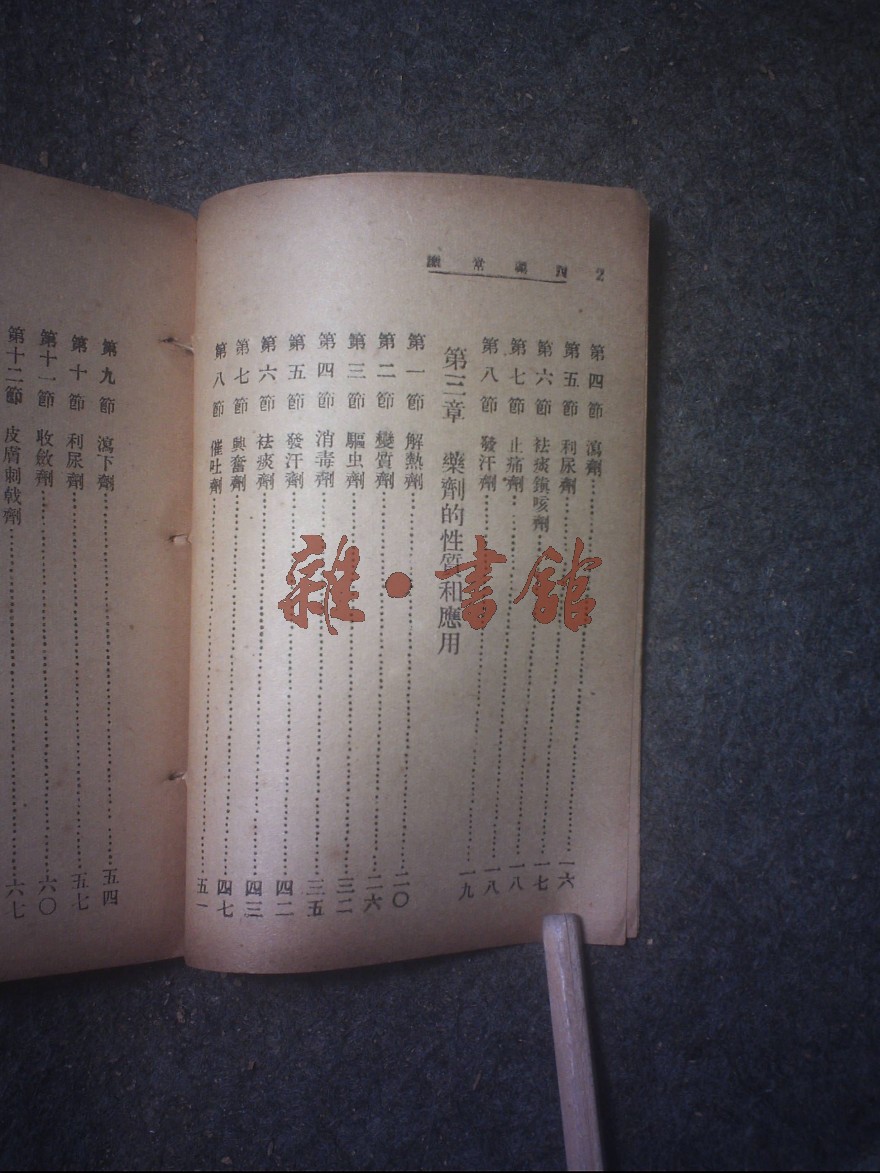 2 用藥常識
第四節 瀉劑……一六
第五節 利尿劑……一七
第六節 袪痰鎮咳劑……一八
第七節 止痛劑……一八
第八節 發汗劑……一九
第三章 藥劑的性質和應用
第一節 解熱劑……二〇
第二節 變質劑……二六
第三節 驅虫劑……三二
第四節 消毒劑……三五
第五節 發汗劑……四二
第六節 袪痰劑……四三
第七節 興奮劑……四七
第八節 催吐劑……五一
第九節 瀉下劑……五四
第十節 利尿劑……五七
第十一節 收斂劑……六〇
第十二節 皮膚刺戟劑……六七
雜·書館